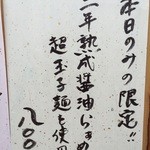 本日のみの限定!!
二年熟成醤油らぁめ
超玉子麺を使用
八〇〇